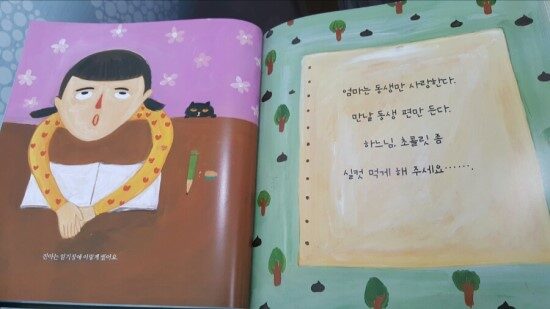 진아는 일기장에 이렇게 썼어요.
엄마는 동생만 사랑한다.
만날 동생 편만 든다.
하느님, 초콜릿 좀
실컷 먹게 해 주세요…….